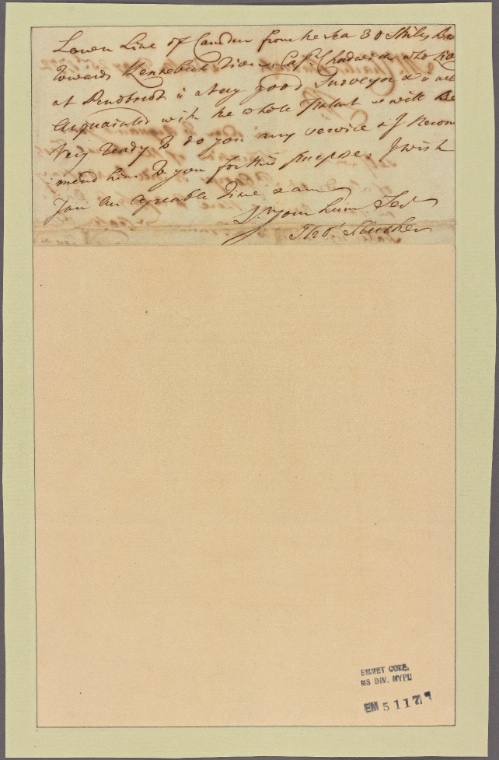 Lower Line of Camden from the sea 30 Miles
towards Kennebeck River Capt. Chadwick who
at Penobscot is a very good Surveyor & is well
Acquainted with the whole & will be
Very Ready to do you any service & I Recom
mend him to you for this purpose. I wish
you an agreeable Time & am
Sr. Your hum Ser
Thos.
EMMET COLL.
MS DIV. NYPL
EM 5117